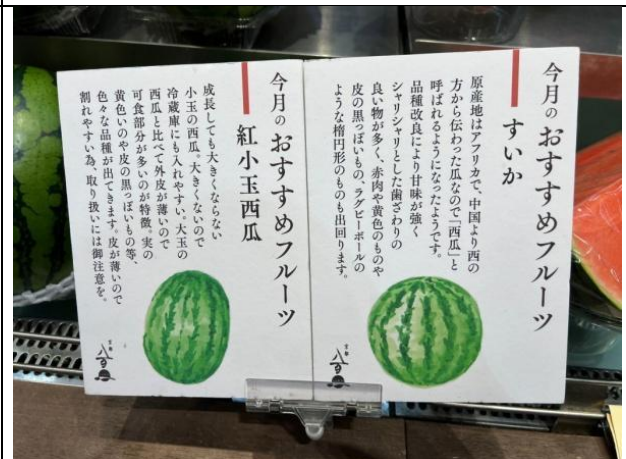 今月のおすすめフルーツ
すいか
原産地はアフリカで、中国より西の
方から伝わった瓜なので「西瓜」と
呼ばれるようになったようです。
品種改良により甘味が強く
シャリシャリとした歯ざわりの
良い物が多く、赤肉や黄色のものや
皮の黒っぽいもの、ラグビーボールの
ような楕円形のものも出回ります。
今月のおすすめフルーツ
紅小玉西瓜
成長しても大きくならない
小玉の西瓜。大きくないので
冷蔵庫にも入れやすい。大玉の
西瓜と比べて外皮が薄いので
可食部分が多いのが特徴。実の
黄色いのや皮の黒っぽいもの等、
色々な品種が出てきます。皮が薄いので
割れやすい為、取り扱いには御注意を。